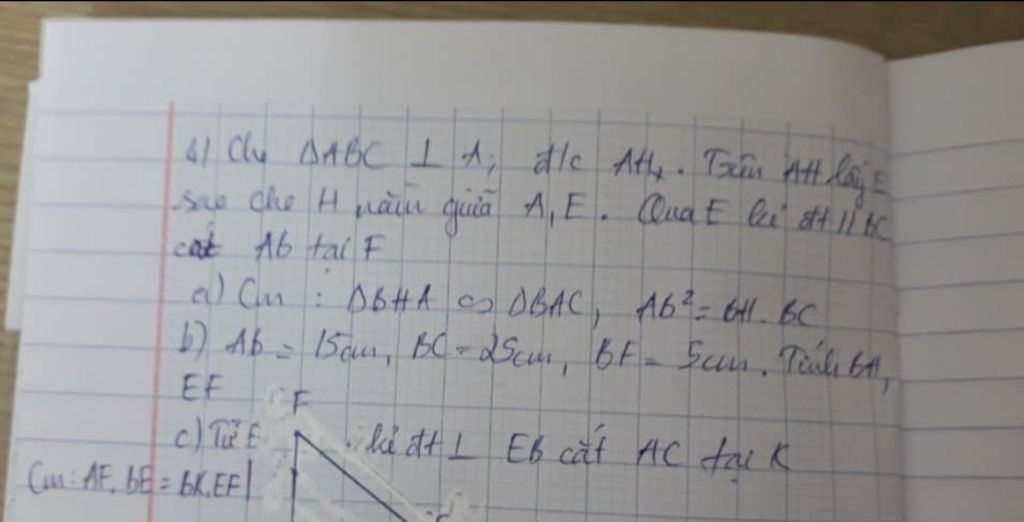 4) Cho ΔABC ⊥ A, đ/c AH. Trên AH lấy E
sao cho H nằm giữa A, E. Qua E kẻ đt // BC
cắt AB tại F
a) Cm : ΔBHA ∽ ΔBAC, AB² = BH. BC
b) AB = 15cm, BC = 25cm, BF = 5cm. Tính BH,
EF
F
c) Từ E kẻ đt ⊥ EB cắt AC tại K
Cm: AE. BE = BK. EF